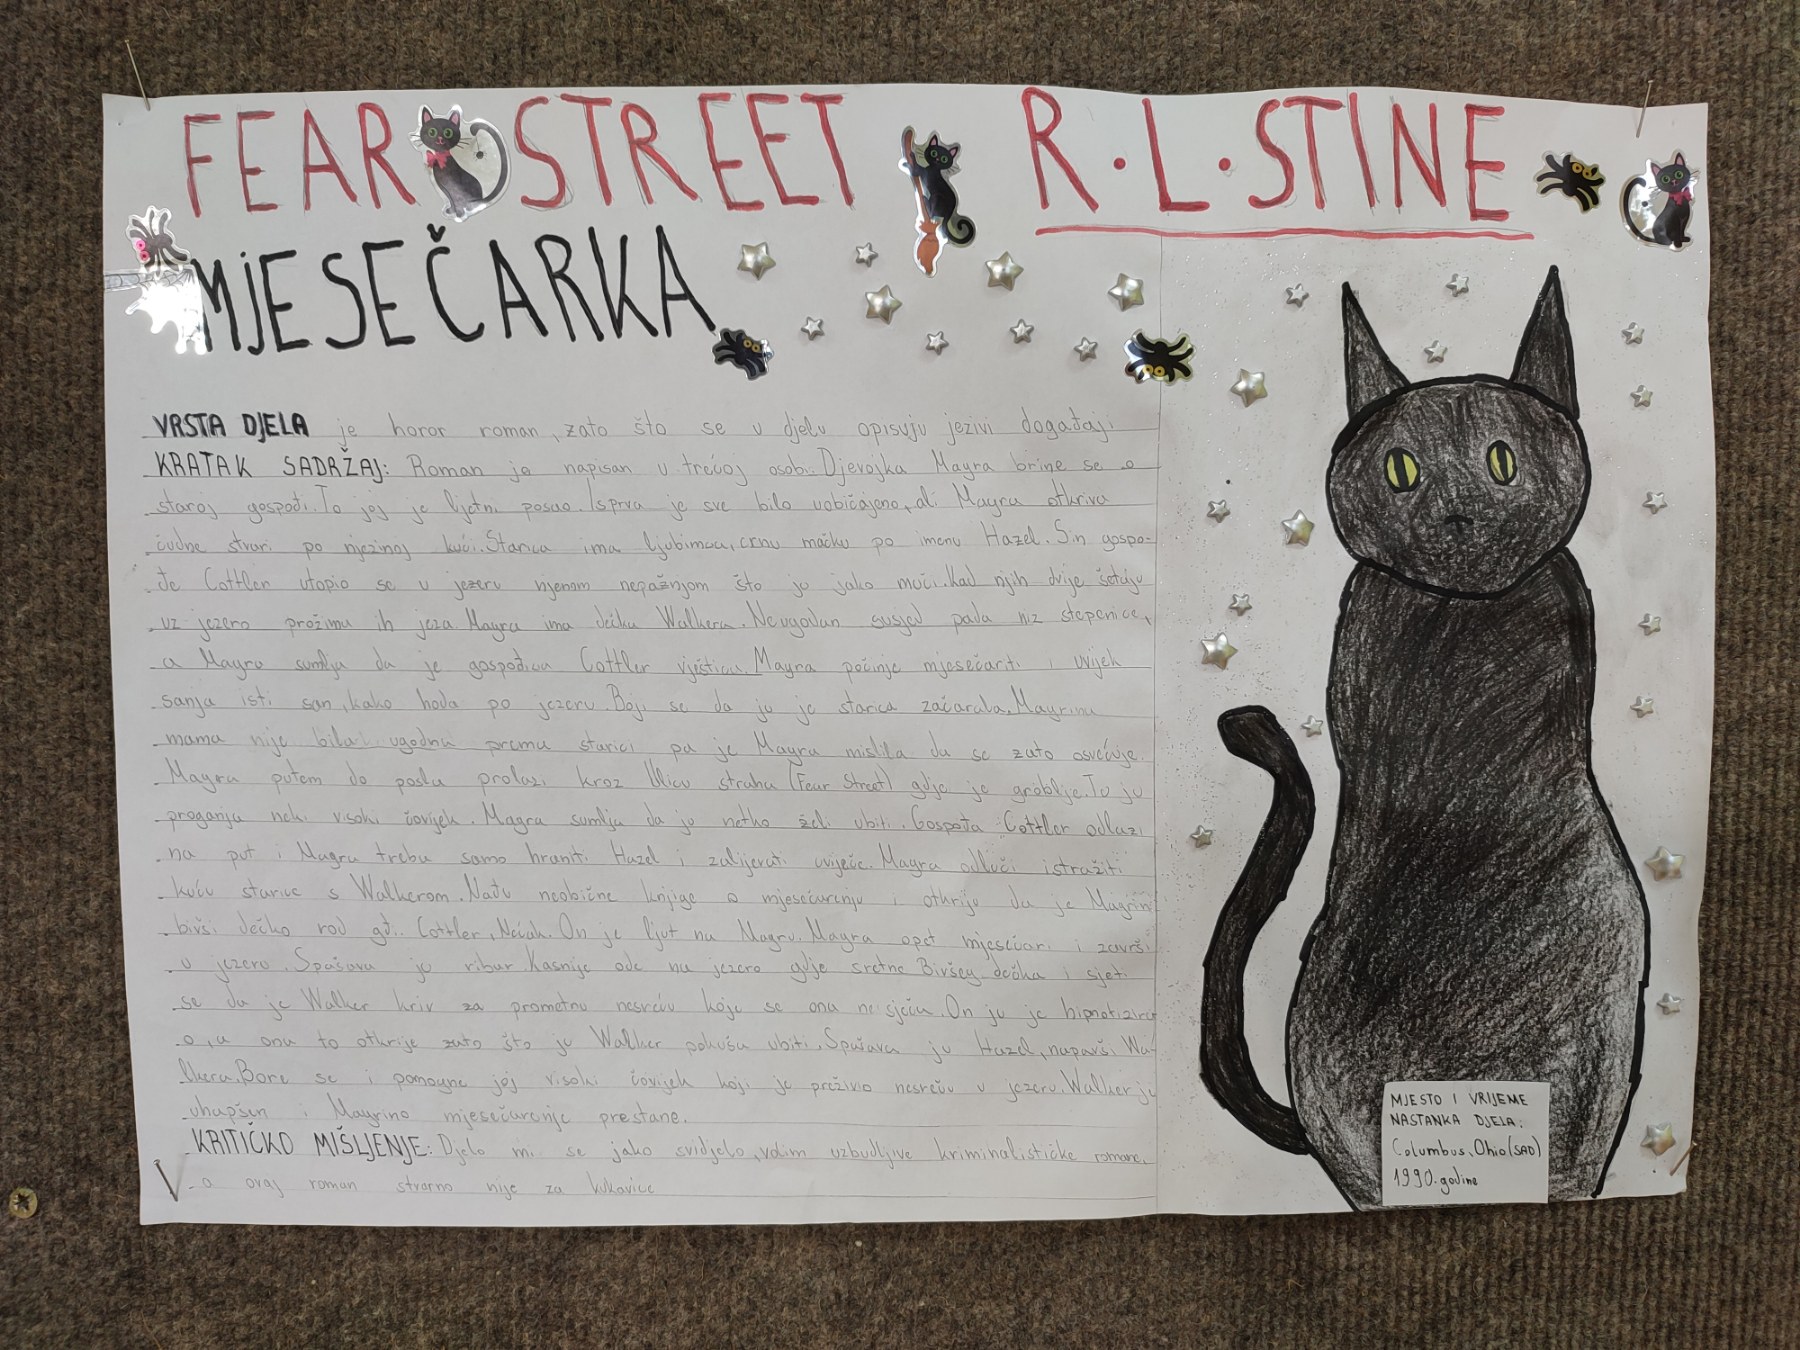 FEAR STREET R.L.STINE
MJESEČARKA
VRSTA DJELA je horor roman, zato što se u djelu opisuju jezivi događaji
KRATAK SADRŽAJ: Roman je napisan u trećoj osobi. Djevojka Mayra brine se o
staroj gospođi. To joj je ljetni posao. Isprva je sve bilo uobičajeno, ali Mayra otkriva
čudne stvari po njezinoj kući. Starica ima ljubimca, crnu mačku po imenu Hazel. Sin gospo-
đe Cottler utopio se u jezeru njenom nepažnjom što ju jako muči. Kad njih dvije šetaju
uz jezero prožima ih jeza. Mayra ima dečka Walkera. Neugodan susjed pada niz stepenice,
a Mayra sumlja da je gospođica Cottler vještica. Mayra počinje mjesečariti i uvijek
sanja isti san, kako hoda po jezeru. Boji se da ju je starica začarala. Mayrina
mama nije bila ugodna prema starici pa je Mayra mislila da se zato osvećuje.
Mayra putem do posla prolazi kroz Ulicu straha (Fear Street) gdje je groblje. Tu ju
proganja neki visoki čovijek. Mayra sumlja da je netko želi ubiti. Gospođa Cottler odlazi
na put i Mayra treba samo hraniti Hazel i zalijevati cvijeće. Mayra odluči istražiti
kuću starice s Walkerom. Nađu neobične knjige o mjesečarenju i otkriju da je Mayrin
bivši dečko rod gđi. Cottler, Nećak. On je ljut na Mayru. Mayra opet mjesečari i završi
u jezero. Spašava ju ribar. Kasnije ode na jezero gdje sretne Bivšeg dečka i sjeti
se da je Walker kriv za prometnu nesreću koje se ona ne sjeća. On ju je hipnotizira
o, a ona to otkrije zato što ju Walker pokuša ubiti. Spašava ju Hazel, napavši Wa-
lkera. Bore se i pomogne joj visoki čovijek koji je preživio nesreću u jezeru. Walker je
uhapšen i Mayrino mjesečarenje prestane.
KRITIČKO MIŠLJENJE: Djelo mi se jako svidjelo, volim uzbudljive kriminalističke romane,
a ovaj roman stvarno nije za kukavice
MJESTO I VRIJEME
NASTANKA DJELA:
Columbus, Ohio (SAD)
1990. godine